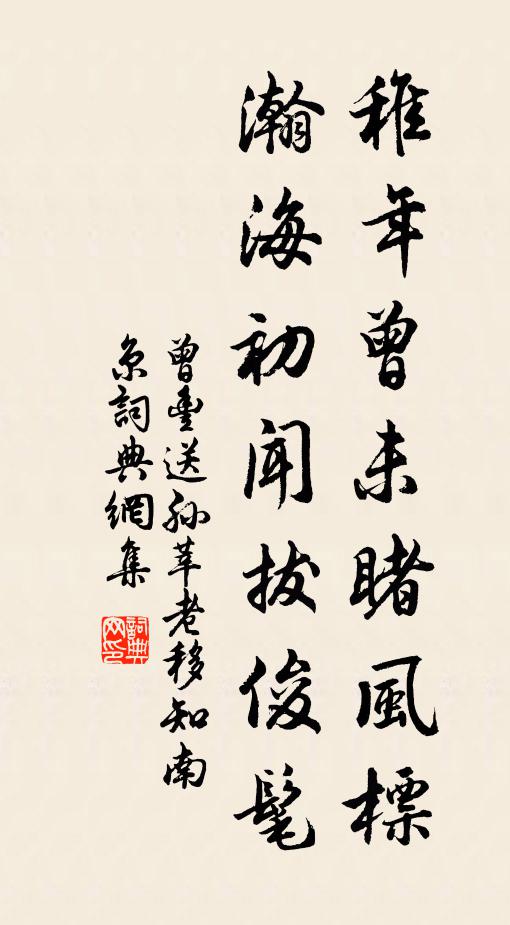 稚年曾未睹風標
瀚海初聞拔俊髦
曾豐送孙莘老移知南
京詞典網集
詞典网印